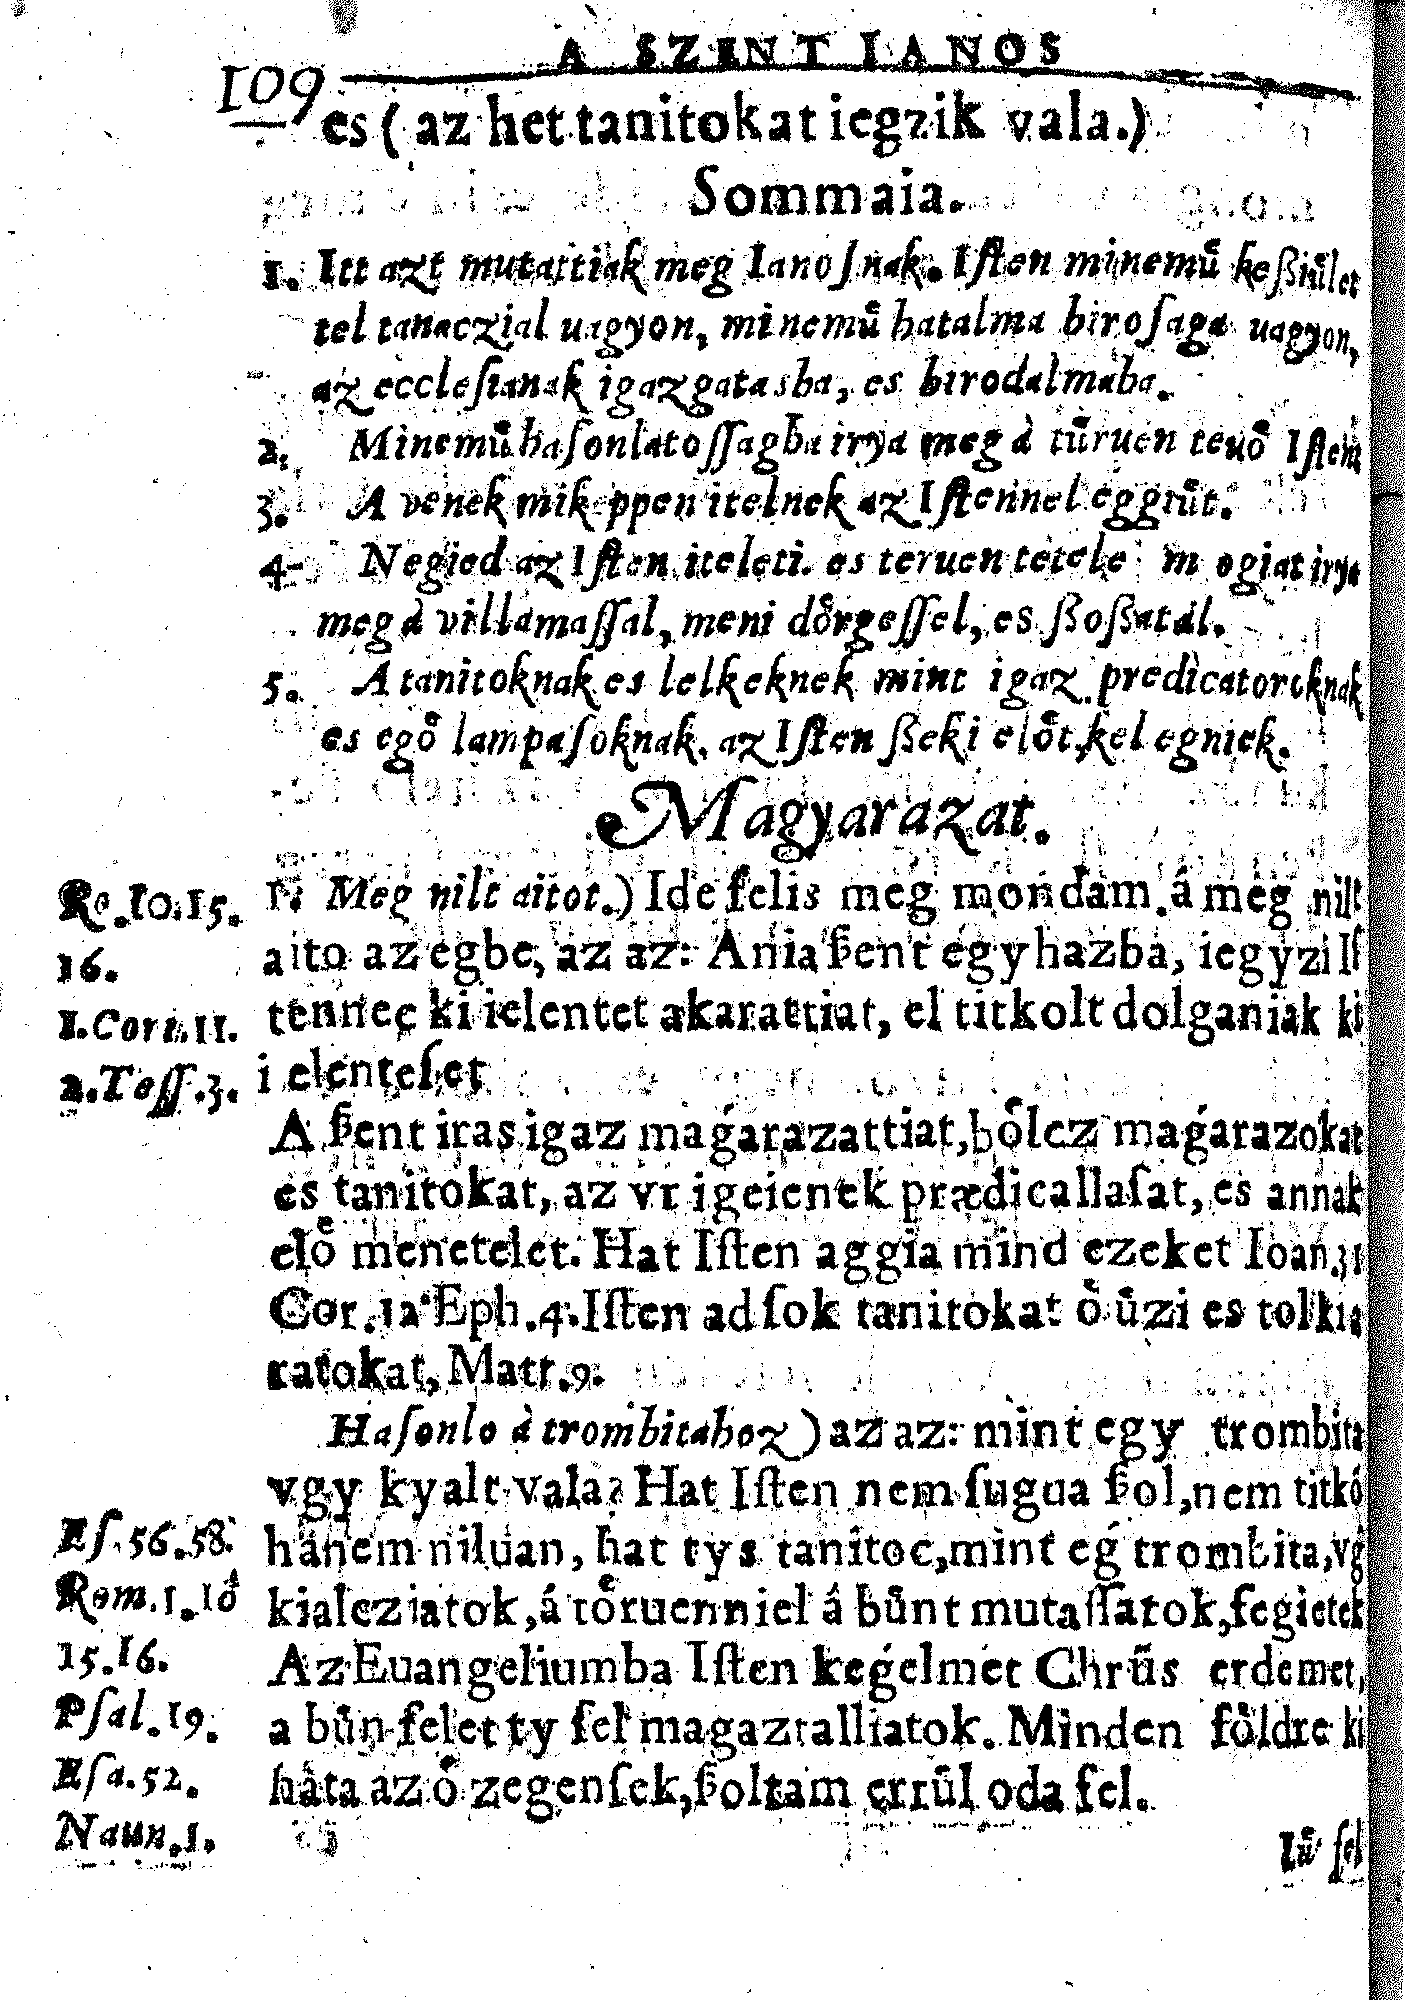 A SZENT IANOS
109
es ( az het tanitokat iegzik vala.)
Sommaia.
1. Itt azt mutattiak meg Ianoſnak. Iſten minemuͤ keßiuͤlet
tel tanaczial uagyon, minemuͤ hatalma biroſaga uagyon,
az eccleſianak igazgatasba, es birodalmaba.
2. Minemuͤ haſonlatoſſagba irya meg à tuͤruen teuoͤ Iſtent
3. A venek mik eppen itelnek az Iſtennel eggiuͤt.
4- Negied az Iſten iteleti. es teruen tetele m ogiat irya
meg à villamaſſal, meni doͤrgeſſel, es ßoßatal.
5. A tanitoknak es lelkeknek mint igaz predicatoroknak
es egoͤ lampaſoknak. az Iſten ßeki eloͤt, kel egniek.
Magyarazat.
1. Meg nilt aitot.) Ide felis meg mondam. á meg nilt
aito az egbe, az az: Ania ßent egyhazba, iegyzi Iſ
tennec ki ielentet akarattiat, el titkolt dolganiak ki
i elenteſet
A ßent iras igaz maǵarazattiat, boͤlcz maǵarazokat
es tanitokat, az vr igeienek prædicallaſat, es annak
eloͤ menetelet. Hat Iſten aggia mind ezeket Ioan.3 1
Cor. 12 Eph.4. Iſten ad ſok tanitokat oͤ uͤzi es tolkia
ratokat, Matt.9.
Haſonlo à trombitahoz) az az: mint egy trombita
vgy kyalt vala? Hat Iſten nem ſugua ßol, nem titkó
hanem niluan, hat tys tanitoc, mint eǵ trombita, vǵ
kialcziatok, á toͤruenniel á buͤnt mutaſſatok, fegietek
Az Euangeliumba Iſten keǵelmet Chruͤs erdemet,
a buͤn felet ty fel magaztalliatok. Minden foͤldre ki
hata az oͤ zegenſek, ßoltam erruͤl oda fel.
Iuͤ fel
Ro.10.15.
16.
1.Cort.11.
2.Teſſ.3.
Eſ.56.58.
Rom.1.10
15.16.
Pſal.19.
Eſa.52.
Naun.1.